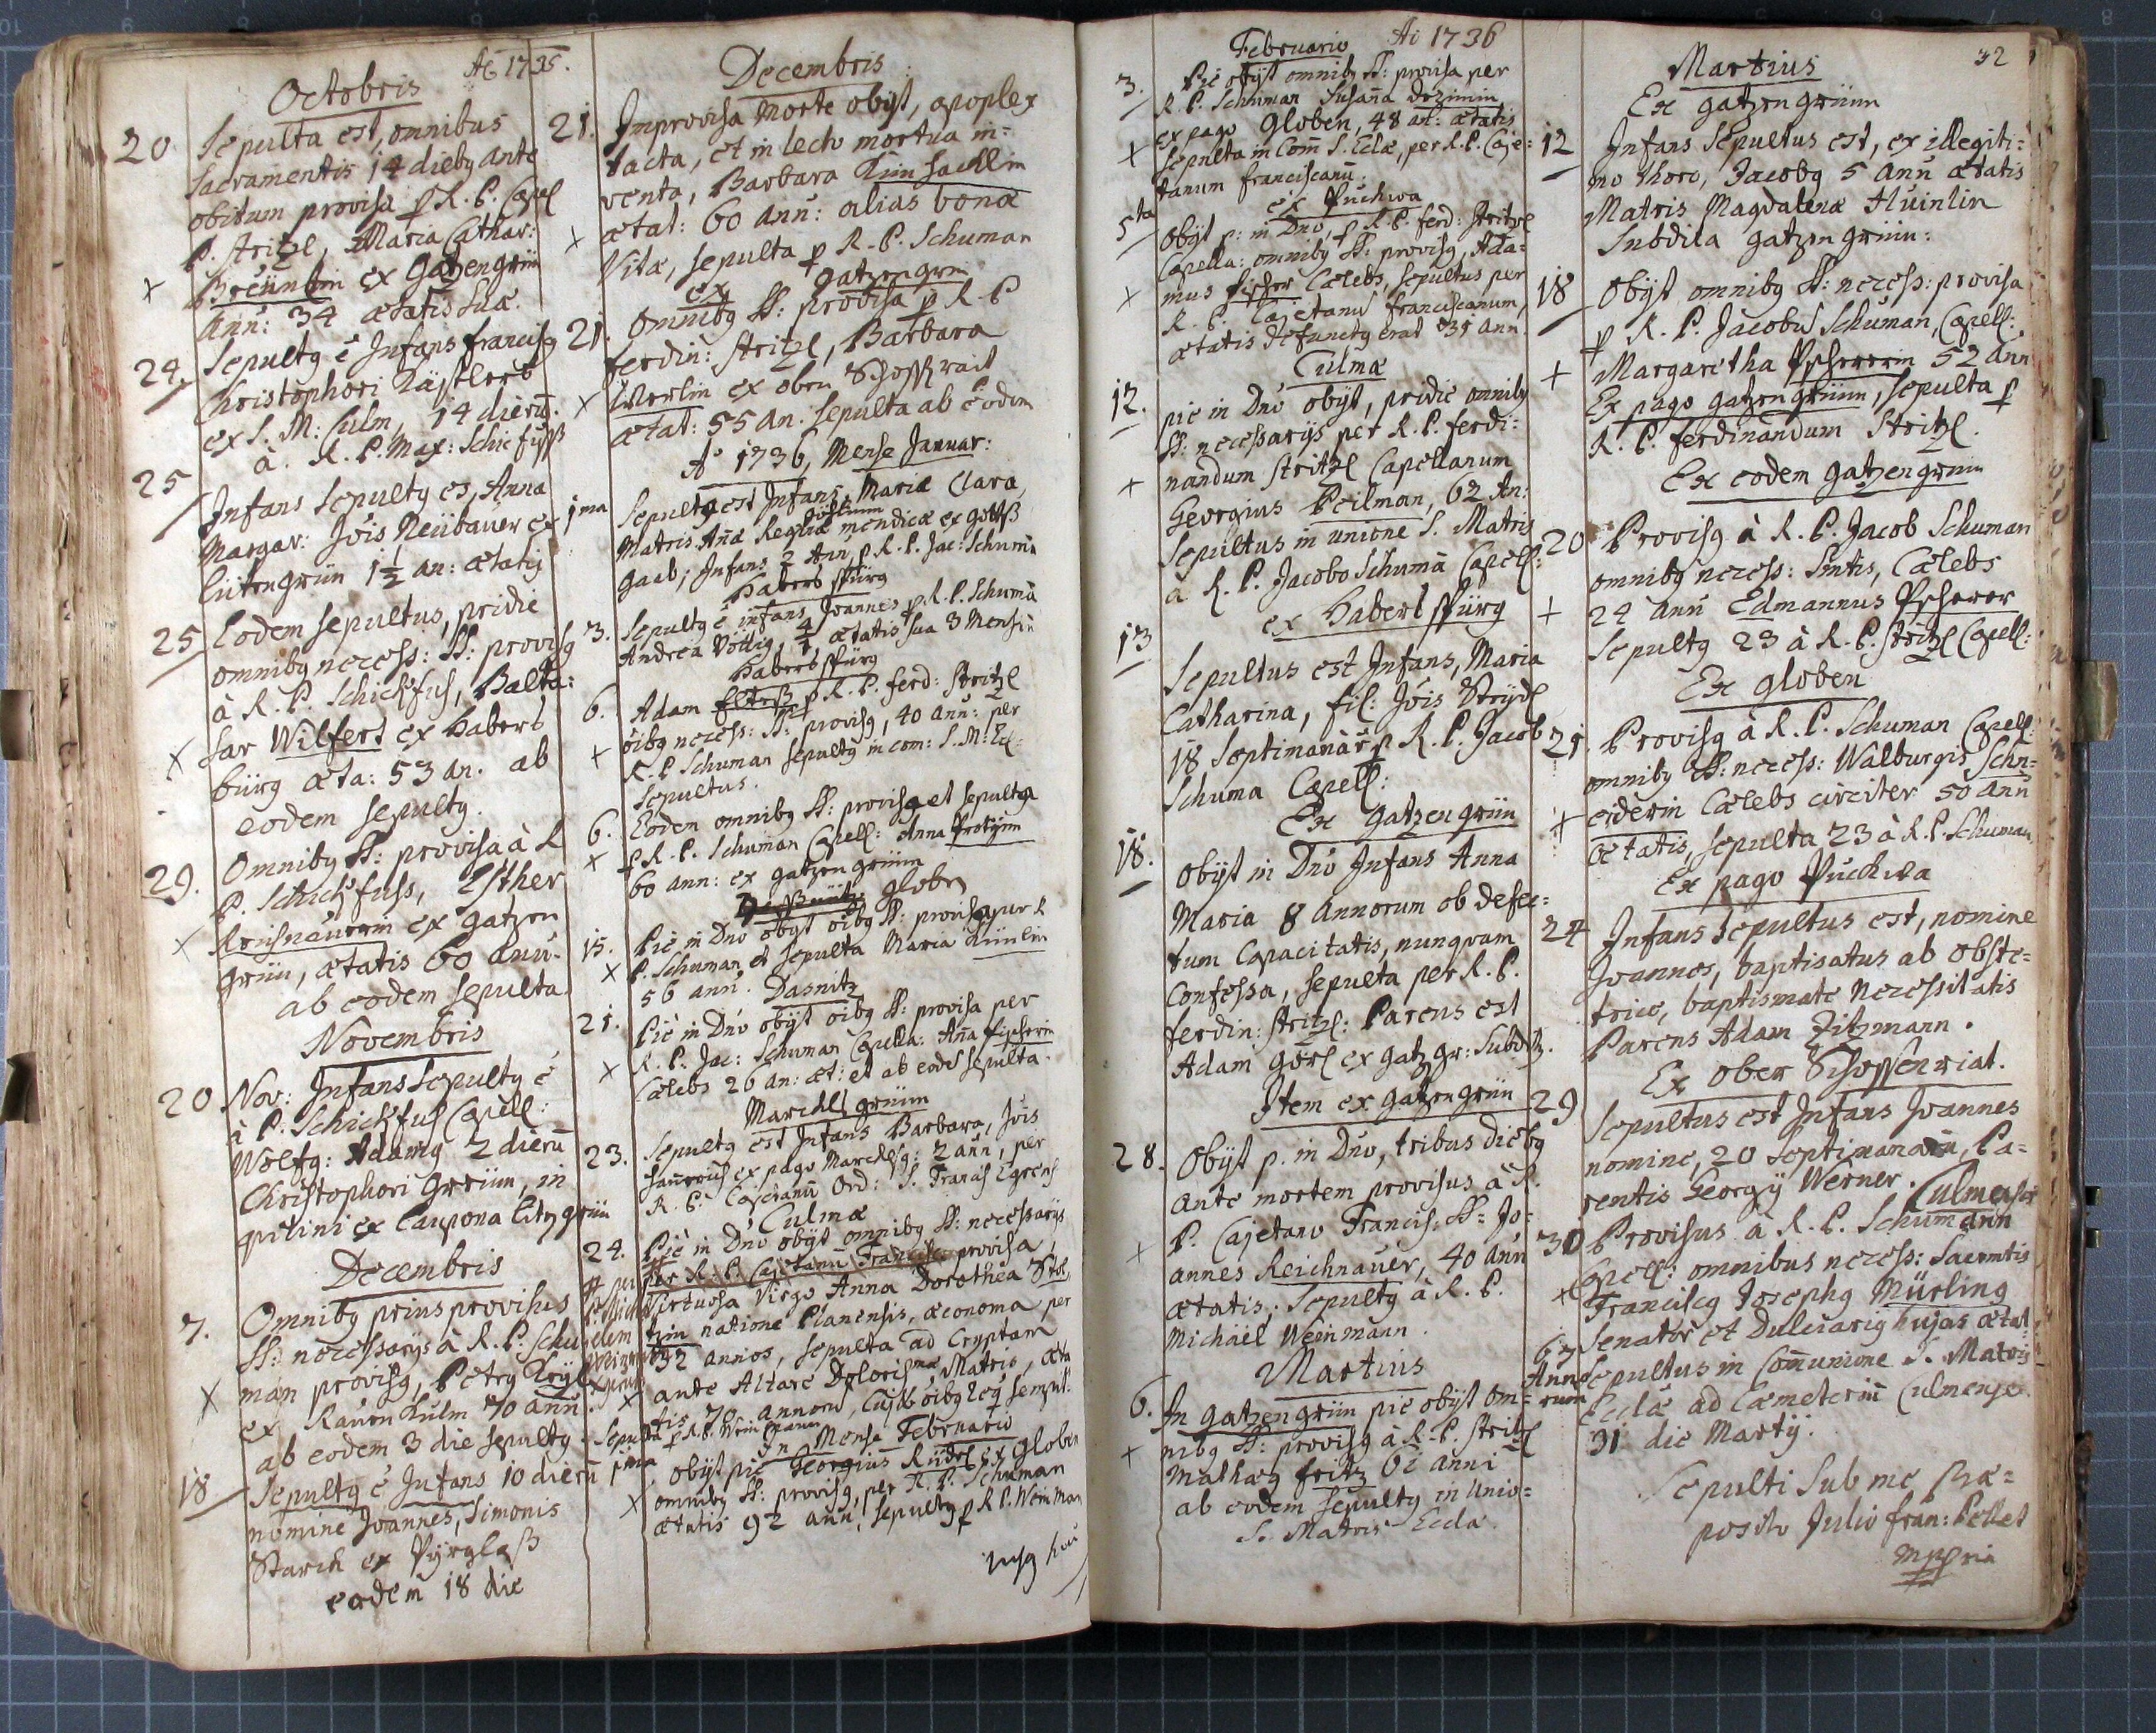 Aõ 1735.
Octobris
20 Sepulta est, omnibus
Sacramentis 14 dieby ante
obitum provisa p R. P. Capel
P. Stritzl, Maria Cathar:
ex Gatzengrün
Ann: 34 ætatis suæ.
24 Sepulty ē Infans Francisq
Christophori Kästlers
ex S. M: Culm, 14 dierū.
à R. P. Max: Schicfuss
25 Infans Sepulty es, Anna
Margar: Jõis Neübauer ex
Litengrün 1½ an: ætatig
25 Eodem sepultus, pridie
omniby necess: SS: provisg
à R. P. Schickfus, Balta:
sar Wilfert ex Habers
bürg æta: 53 an. ab
eodem sepulty.
29. Omniby SS: provisa à R
P. Schickfuss, Esther
ex Gatzen
grün, ætatis 60 ann.
ab eodem sepulta
Novembris
20 Nov: Infans sepulty ē
à P. Schickfus Capell:
Wolfg: Adamg 2 dierū
Christophori Grrün, in
ex Caupona Litzgrün
Decembris
7. Omniby prius provisus
SS: necessarijs à R. P. Schu
man provisg, Petry
ex Rauen Kulm 70 ann.
ab eodem 3 die sepulty
18 Sepulty ē Infans 10 dierū
nomine Joannes, Simonis
Starck ex Pyrglaß
eodem 18 die
Decembris
21. Improvisa Morte obijt, apoplex
tacta, et in lecto mortua in=
venta, Barbara
ætat: 60 ann: alias bonæ
Vitæ, sepulta p R. P. Schuman
ex Gatzengrün
21. Omniby SS: provisa p R. P
Ferdin: Stritzl, Barbara
Werlin ex oben Schossrait
ætat: 55 an. sepulta ab eodem
Aº 1736, Mense Januar:
1ma Sepulta est Infans, Mariæ Clara,
Matris Aña Reginæ mendicæ ex Gotts
gaab; Infans 2 Ann, p R. P. Jac: Schumā
Habersspürg
3. Sepulty ē infans Joannes p R. P. Schumā
Andrea Völlig, ætatis sua 3 Mensiū
Habersspürg
6. Adam p R. P. Ferd: Stritzl
oiby necess: SS: provisg, 40 ann: per
R. P. Schuman sepulty in com: S. M: Ecl:
sepultus.
6. Eodem omniby SS: provisa et sepulta
p R. P. Schuman Capell: Anna
60 ann: ex Gatzengrünn
Globen
15. Pie in Dno obijt oiby SS: provisa per R
P. Schuman et sepulta Maria Künlin
56 ann. Dasnitz
21. Pie in Dno obijt oiby SS: provisa per
R. P. Jac: Schuman Capella: Aña Fischerin
Cælebs 26 an: æt: et ab eodē sepulta.
Marckls grünn
23. Sepulty est Infans Barbara, Jõis
ex pago Marcklsg: 2 ann, per
R. P. Cajetanū Ord: S. Francis Egrens
Culmæ
24. Pie in Dno obijt omniby SS: necessarijs
per R. P. Cajetanū Francisc provisa,
Virtuosa Virgo Anna Dorothea
natione Planensis, œconoma per
32 annos, sepulta ad Cryptam
ante Altare Dolorismæ Matris, æta
tis 70 annorū,
Sepulta p R. P. Weinman
In Mense Februario
1ma Obijt pie Georgius Rüdel ex Globen
omniby SS: provisg, per R. P. Schuman
ætatis 92 ann, sepulty p R. P. Weinman
Februario Ai 1736
3. Pie obijt omniby SS: provisa per
R. P. Schuman Susaña
ex pago Globen, 48 an: ætatis
sepulta in Com S. Eclæ, per R. P. Caje=
tanum Franciscanū.
ex Puchwa
5ta Obijt p: in Dno, p R. P. Ferd: Stritzl
Capella: omniby SS: provisg, Ada=
mus Fischer Cælebs, sepultus per
R. P. Cajetanū Franciscanum,
ætatis defuncty erat 35 ann.
Culmæ
12. pie in Dno obijt, pridie omniby
SS: necessarijs per R. P. Ferdi:
nandum Stritzl Capellanum
Georgius Peilman, 62 An:
sepultus in unione S. Matris
à R. P. Jacobo Schumā Capell:
ex Habersspürg
13 Sepultus est Infans, Maria
Catharina, fil: Jõis
18 Septimanarū p R. P. Jacob
Schuma Capell:
Ex Gatzengrün
18. Obijt in Dno Infans Anna
Maria 8 annorum ob defec=
tum Capacitatis, nunquam
Confessa, sepulta per R. P.
Ferdin: Stritzl: Parens est
Adam Görl ex Gatzgr: Subditg.
Item ex Gatzengrün
28. Obijt p. in Dno, tribus dieby
ante mortem provisus à R.
P. Cajetano Francis: SS: Jo=
annes Reichnauer, 40 ann
ætatis; Sepulty à R. P.
Michäel Weinmann.
Martius
6. In Gatzengrün pie obijt om=
niby SS: provisg à R. P. Stritzl
Mathæg Fritz 61 anni
ab eodem sepulty in Unio=
S. Matris Ecclæ.
32
Martius
Ex Gatzengrünn
12 Infans sepultus est, ex illegiti=
mo thoro, Jacoby 5 ann ætatis
Matris Magdalenæ Huinlin
Subdita Gatzengrün:
18 Obijt omniby SS: necess: provisa
p R. P. Jacobū Schuman, Capell:
Margaretha Pschererin 52 ann
Ex pago Gatzengrünn, sepulta p
R. P. Ferdinandum Stritzl.
Ex eodem Gatzengrün
20 Provisg à R. P. Jacob Schuman
omniby necess: Smtis, Cælebs
24 ann Edmannus Pscherer
sepulty 23 à R. P. Stritzl Capell:
Ex Globen
21. Provisg à R. P. Schuman Capell:
omniby SS: necess: Walburgis Schn=
eiderin Cælebs circiter 50 ann
ætatis, sepulta 23 à R. P. Schuman
Ex pago Puchwa
24 Infans sepultus est, nomine
Joannes, baptisatus ab obste=
trice, baptismate Necessitatis
Parens Adam Zitzmann.
Ex Ober Schossenriat.
29 Sepultus est Infans Joannes
nomine, 20 Septimanarū, Pa=
rentis Georgij Werner. Culmensis
30 Provisus à R. P. Schumann
Capell: omnibus necess: Sacmtis
Franciscg Josephg Mürling
Senator et Dulciarig hujas ætat=
67 Annorum
Sepultus in Communione S. Matris
Eclæ ad Cæmeteriū Culmense
31 die Martij.
Sepulti Sub me Præ=
posito Julio Fran: Pellet
mppria